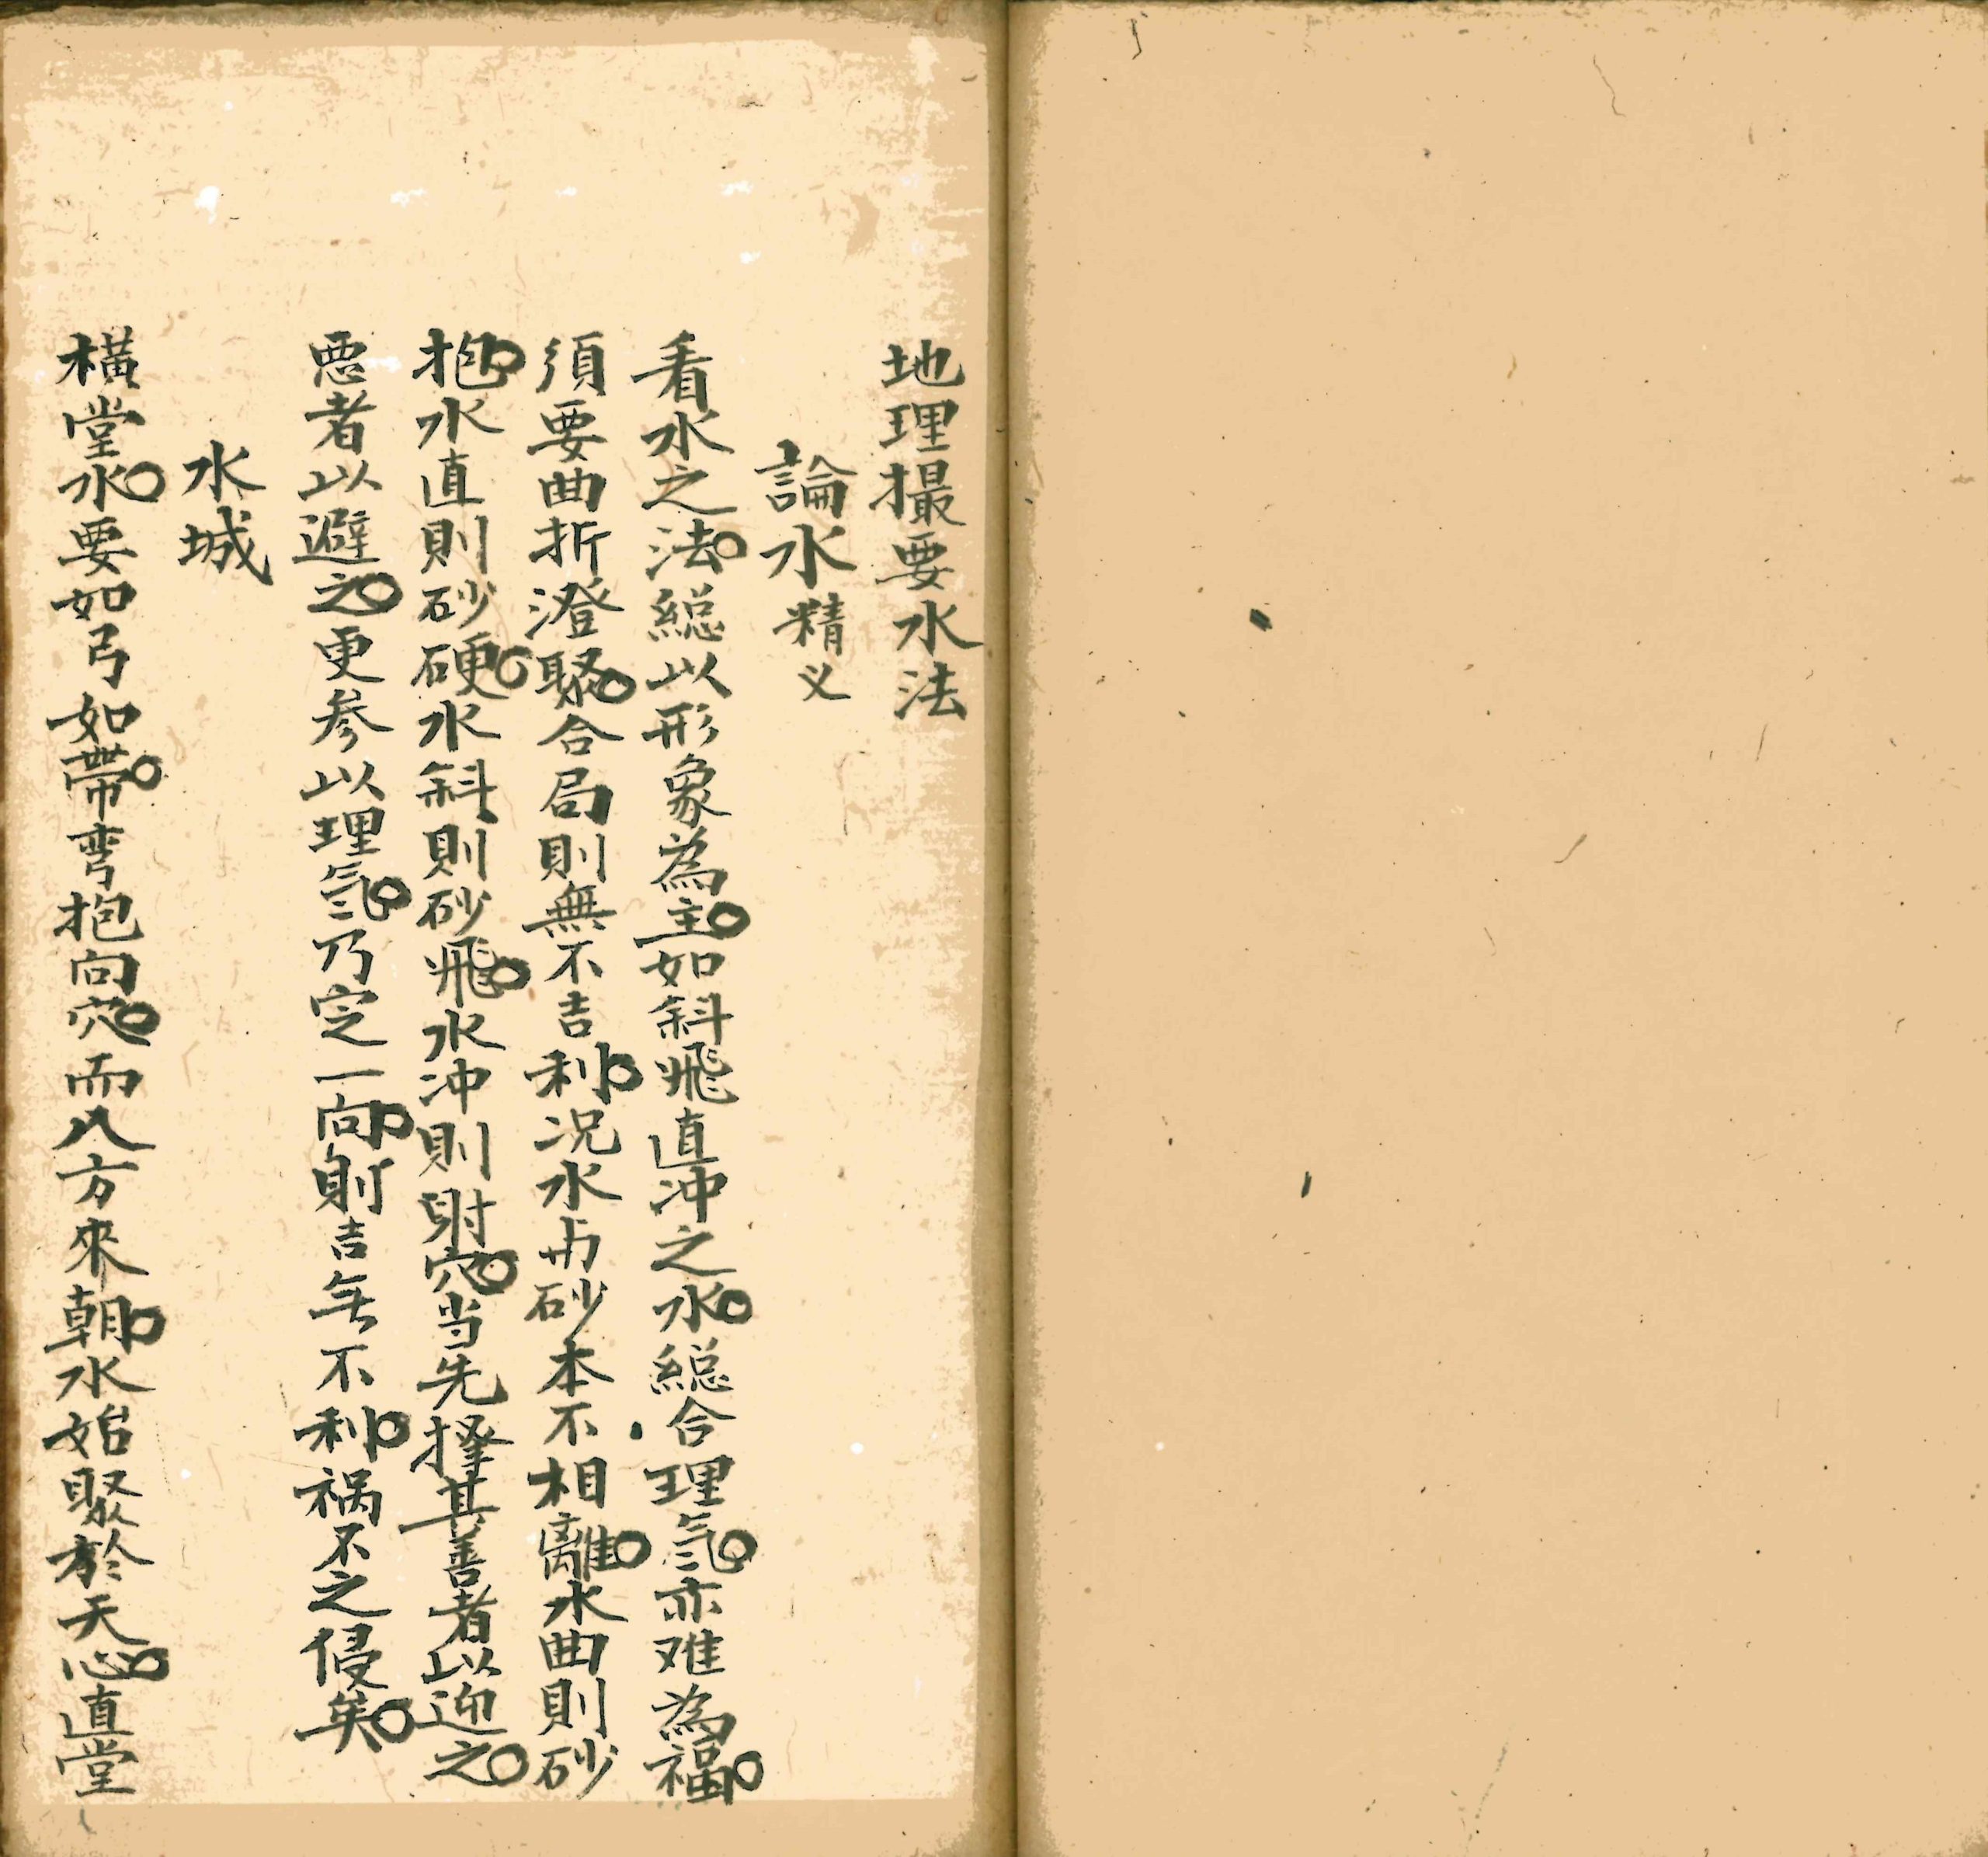 地理撮要水法
論水精义
看水之法。総以形象為主。如斜飛直冲之水。総合理氣。亦难為福。
須要曲折澄聚。合局則無不吉利。况水与砂本不相離。水曲則砂
抱。水直則砂硬。水斜則砂飛。水冲則射穴。当先擇其善者以迎之。
恶者以避之。更参以理氣。乃定一向。則吉無不利。禍不之侵矣。
水城
横堂水。要如弓如帶。弯抱向穴。而八方來朝。水始聚於天心。直堂